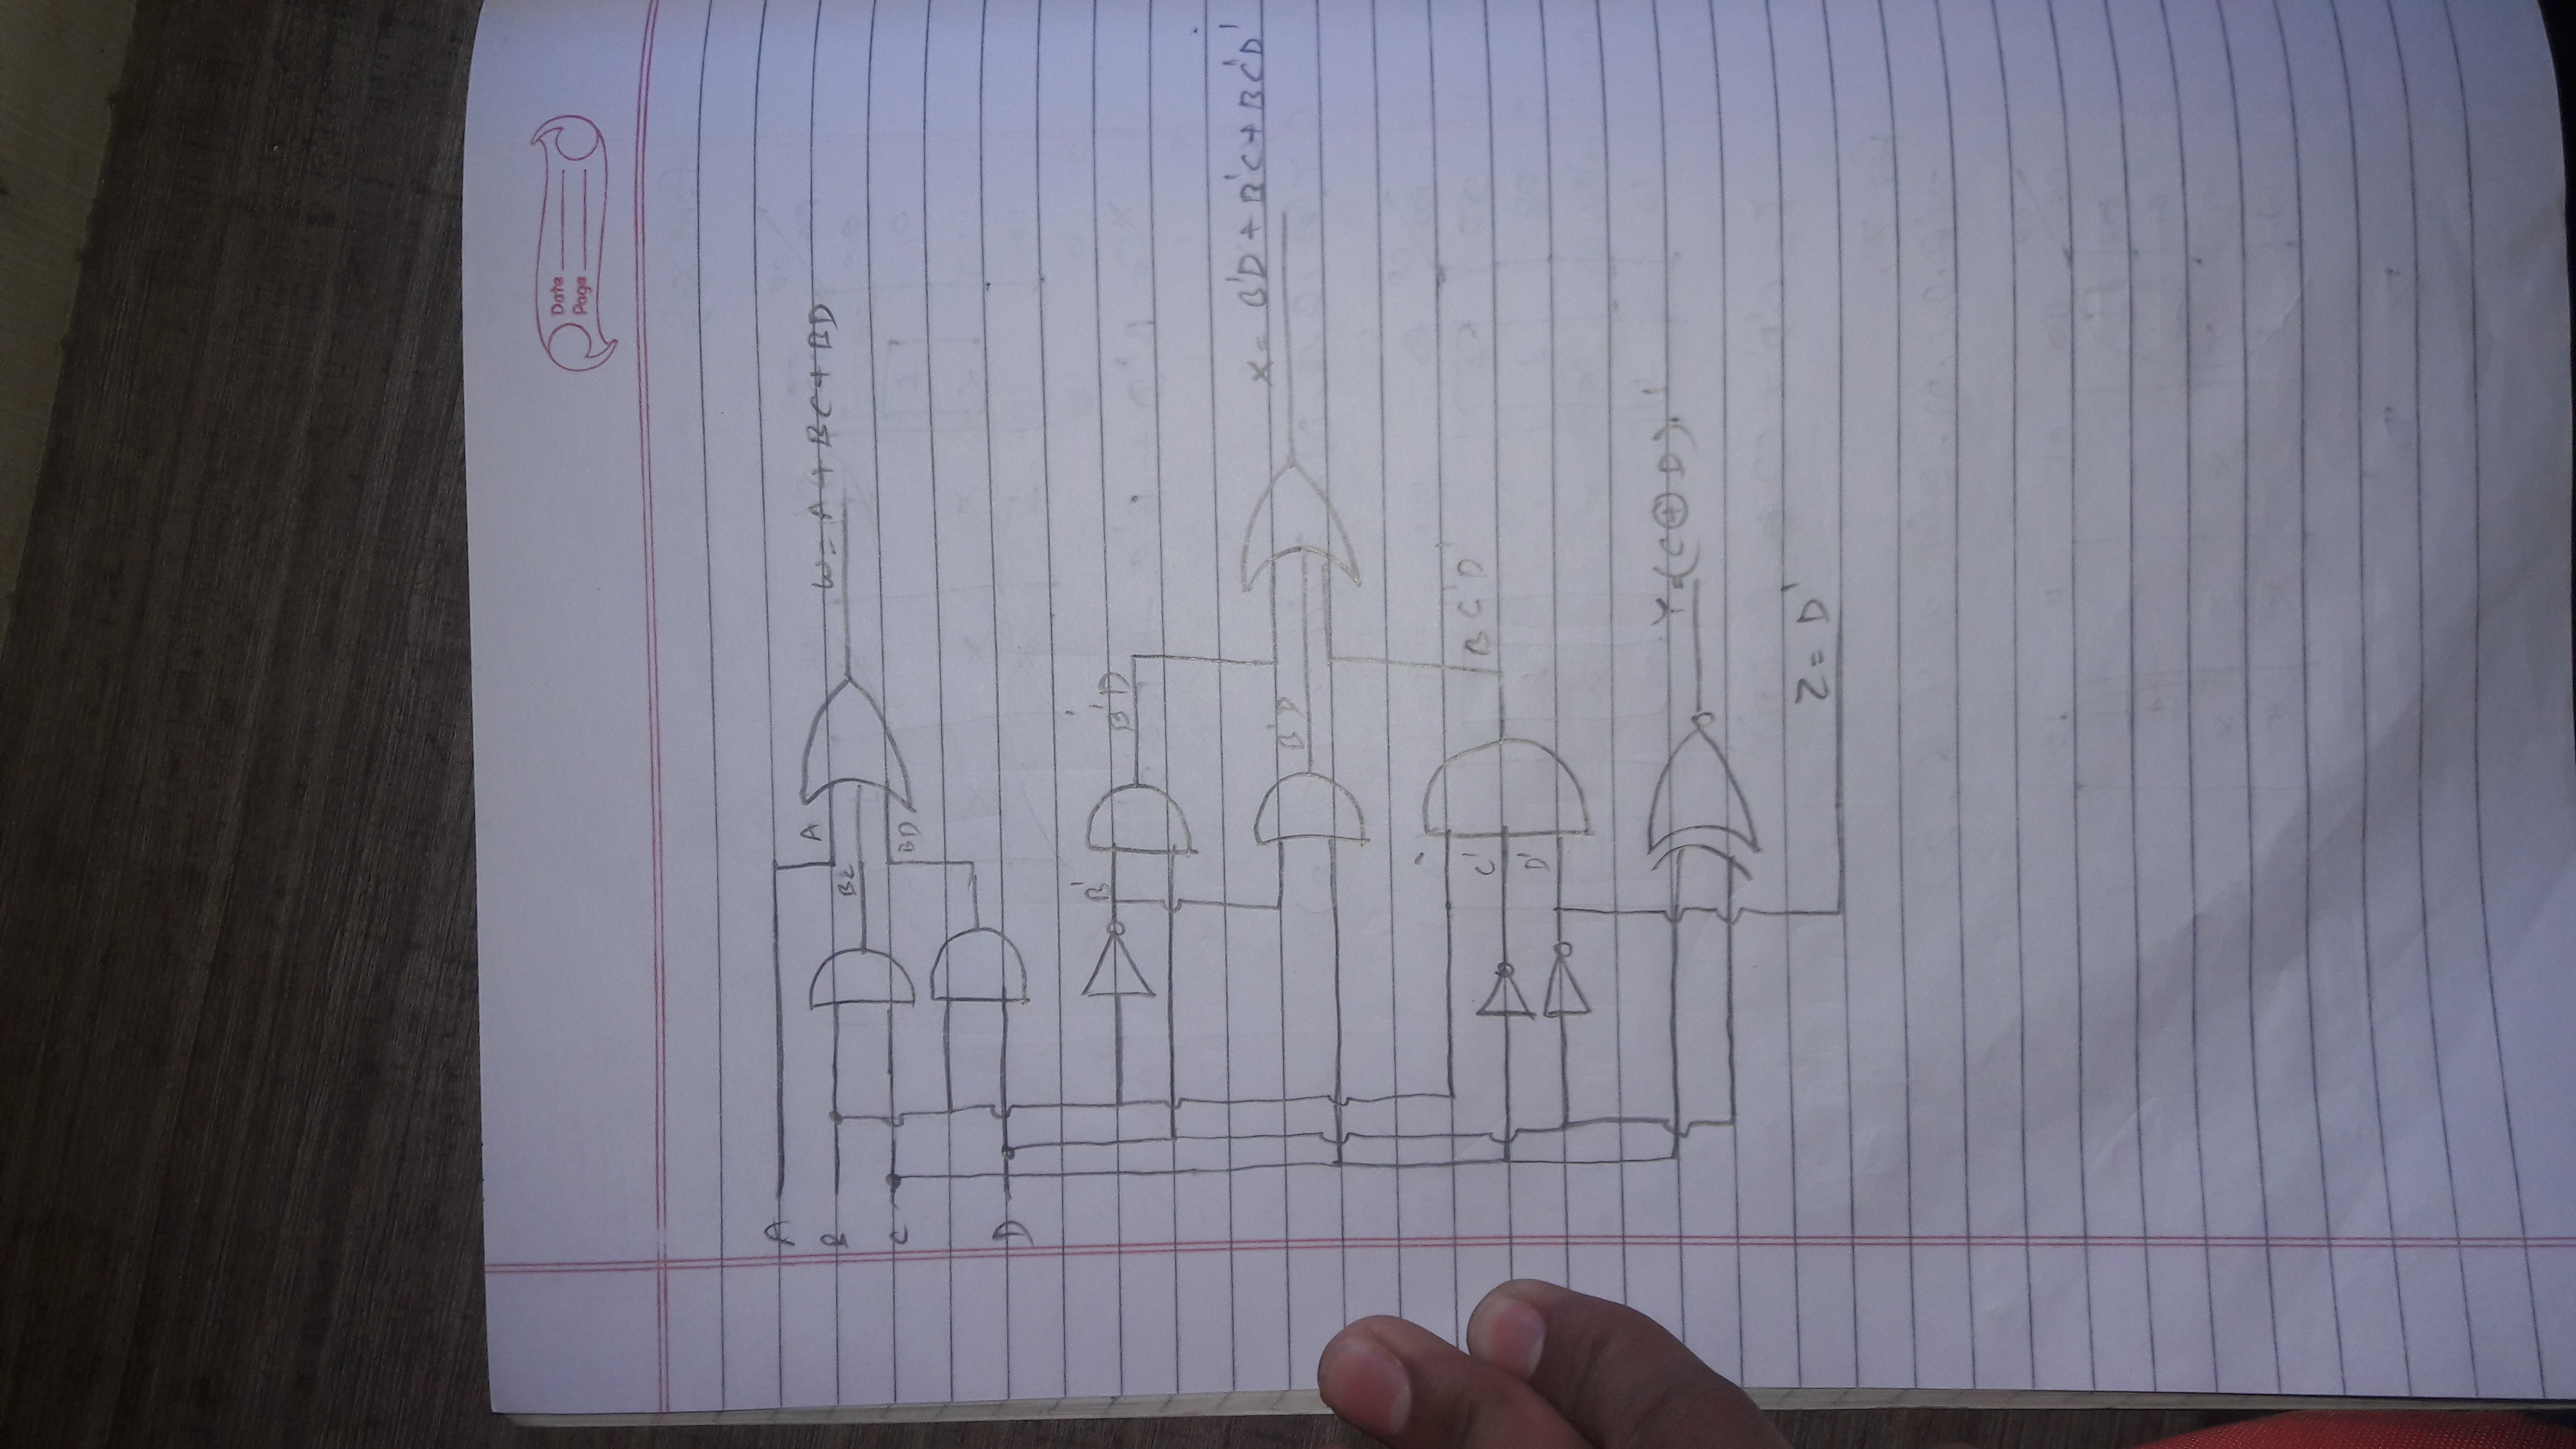 Date
Page
A
B
C
D
A
BC
BD
W = A + BC + BD
B'
B'D
B'D
X = B'D + B'C + BC'D'
C'
D'
BC'D'
Y = (C ⊕ D)'
Z = D'